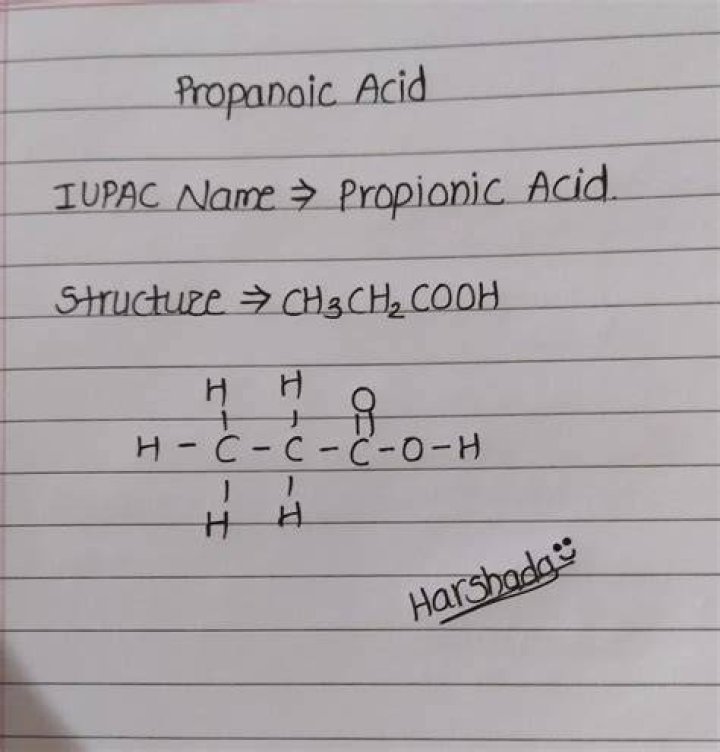 Propanoic Acid
IUPAC Name ⇒ Propionic Acid.
Structure ⇒ CH₃CH₂COOH
H H O
H - C - C - C - O - H
H H
Harshada